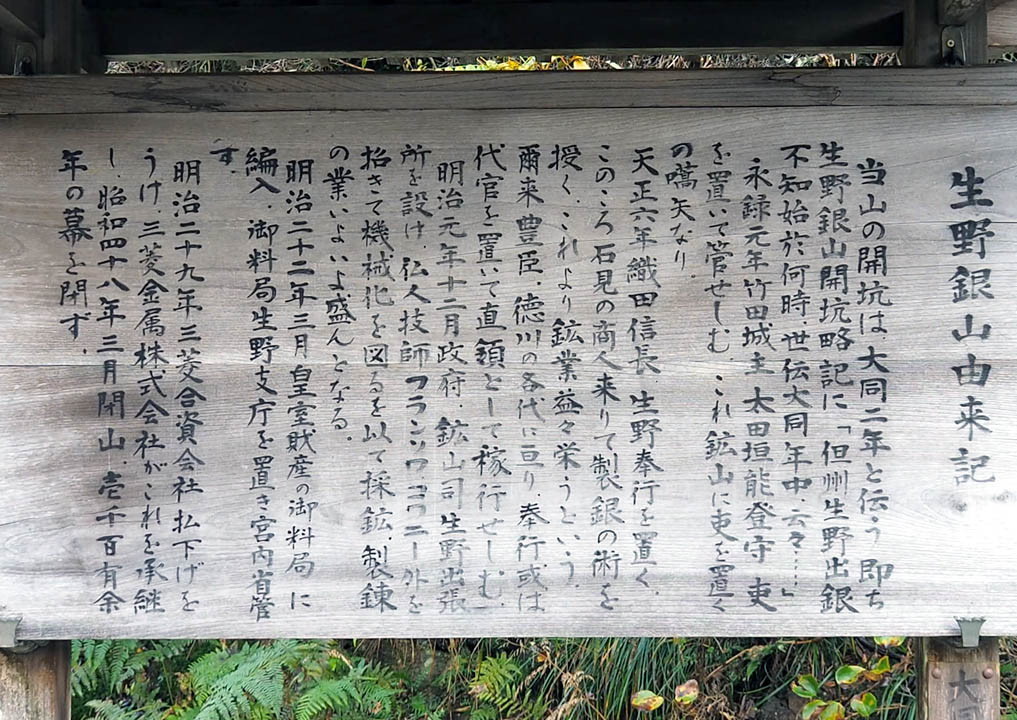 生野銀山由来記
当山の開坑は、大同二年と伝う 即ち
生野銀山開坑略記に「但州生野出銀
不知始於何時、世伝大同年中、云々……」
永録元年竹田城主 太田垣能登守 吏
を置いて管せしむ、これ鉱山に吏を置く
の嚆矢なり、
天正六年織田信長、生野奉行を置く、
このころ石見の商人来りて製銀の術を
授く、これより鉱業益々栄うという、
爾来 豊臣、徳川の各代に亘り、奉行或は
代官を置いて直領として稼行せしむ、
明治元年十二月政府、鉱山司 生野出張
所を設け、仏人技師フランソワ、コワニー外を
招きて機械化を図るを以て採鉱、製錬
の業いよいよ盛んとなる、
明治二十二年三月皇室財産の御料局に
編入、御料局生野支庁を置き宮内省管
す、
明治二十九年三菱合資会社払下げを
うけ、三菱金属株式会社がこれを承継
し、昭和四十八年三月閉山、壱千百有余
年の幕を閉ず、
大同